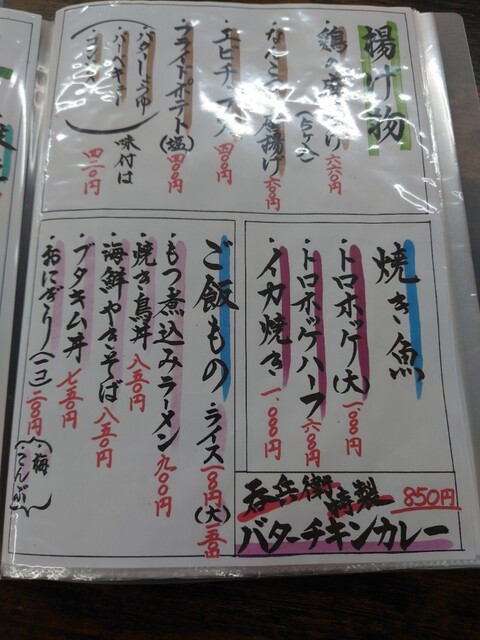 揚げ物
・鶏の唐揚げ 六六〇円
・なんこつ唐揚げ
・エビチップス 四〇〇円
・フライドポテト(塩) 四〇〇円
(バターしょうゆ
バーベキュー
コンソメ)
味付は
四二〇円
焼き魚
・トロホッケ(大)
・トロホッケハーフ 六〇〇円
・イカ焼き 一、〇〇〇円
ご飯もの
ライス
(大)
・もつ煮込みラーメン 九〇〇円
・焼き鳥丼 八五〇円
・海鮮やきそば 八五〇円
・ブタキム丼 七五〇円
・おにぎり(一コ) 二〇〇円 (梅
こんぶ)
呑兵衛特製 850円
バターチキンカレー